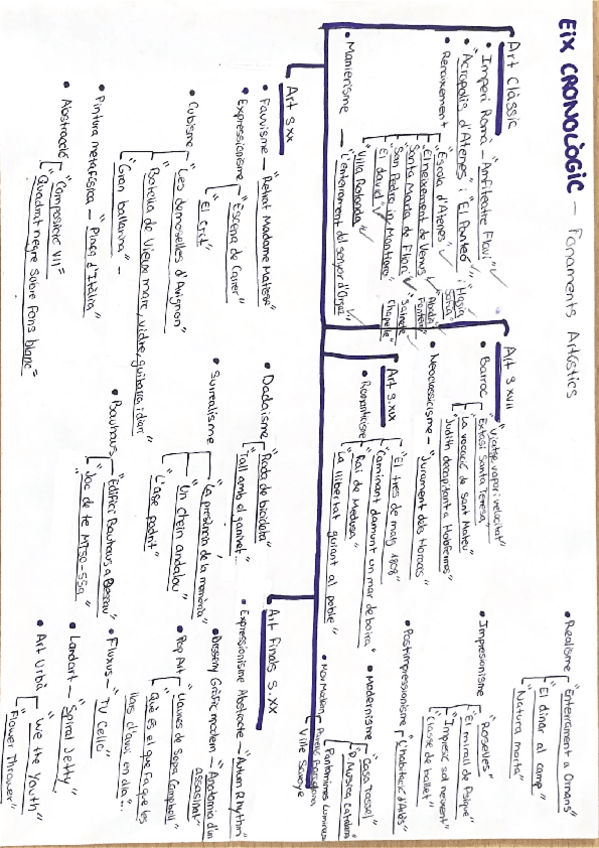 EIX CRONOLÒGIC - Fonaments Artístics
Art Clàssic
• Imperi Romà - "Anfiteatre Flavi"
• Acropolis d'Atenes i "El Partenó"
• Renaixement
"Escola d'Atenes"
"El neixement de Venus"
"Santa Maria de Fiori"
"San Pedro in Montorio"
"El david"
"Villa Rotonda"
• Manierisme - "L'enterrament del senyor d'Orgaz"
Art S.XVII
"Viatge, vapor i velocitat"
• Barroc
"Extasi Santa Teresa"
"La vocació de sant Mateu"
"Judith decapitant a Holofernes"
• Neoclassicisme - "Jurament dels Horacis"
Art S.XIX
• Romanticisme
"El tres de maig 1808"
"Caminant damunt un mar de boira"
"Rai de Medusa"
"La llibertat guiant al poble"
• Realisme
"Enterrament a Ornans"
"El dinar al camp"
"Natura morta"
• Impresionisme
"Roselles"
"El mirall de Psique"
"Impresió sol neixent"
"Classe de ballet"
• Postimpressionisme - "L'habitació d'Arles"
• Modernisme
"Casa Trassel"
"P. Musica Catalana"
"Pantomimes Luminoses"
• Mov Modern
Ville Savoye
Art S.XX
• Fauvisme - "Retrat Madame Matisse"
• Expressionisme
"Escena de Carrer"
"El crit"
• Cubisme
"Les demoiselles d'Avignon"
"Botella de Vieux marc, vidre, guitarra i diari"
"Gran ballarina"
• Pintura metafísica - "Plaça d'Itàlia"
• Abstracció
"Composicio VII"
"Quadrat negre sobre fons blanc"
• Dadaisme
"Roda de bicicleta"
"Tall amb el ganivet..."
• Surrealisme
"La persistencia de la memòria"
"Un chein andalou"
"L'ase podrit"
• Bauhaus
"Edifici Bauhaus a Dessau"
"Joc de te MT50-55a"
Art Finals S.XX
• Expressionisme Abstracte - "Autum Rhythm"
• Disseny Gràfic modern - "Anatomia d'un assasinat"
• Pop Art
"Llaunes de Sopa Campbell"
"Què és el que fa que les llars d'avui en dia..."
• Fluxus - "TV Cello"
• Landart - "Spiral Jetty"
• Art Urbà
"We the Youth"
"Flower Thrower"